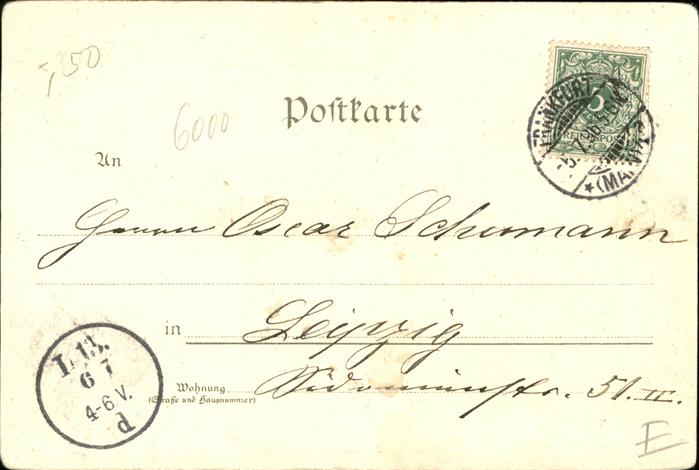 ,50
6000
Postkarte
5
REICHSPOST
FRANKFURT
5.7.96
*(MAIN)
An
Herrn Oscar Schumann
in Leipzig
Wohnung
(Straße und Hausnummer)
Sidonienstr. 51. II.
L. 13.
6 7
4-6.V.
d
E